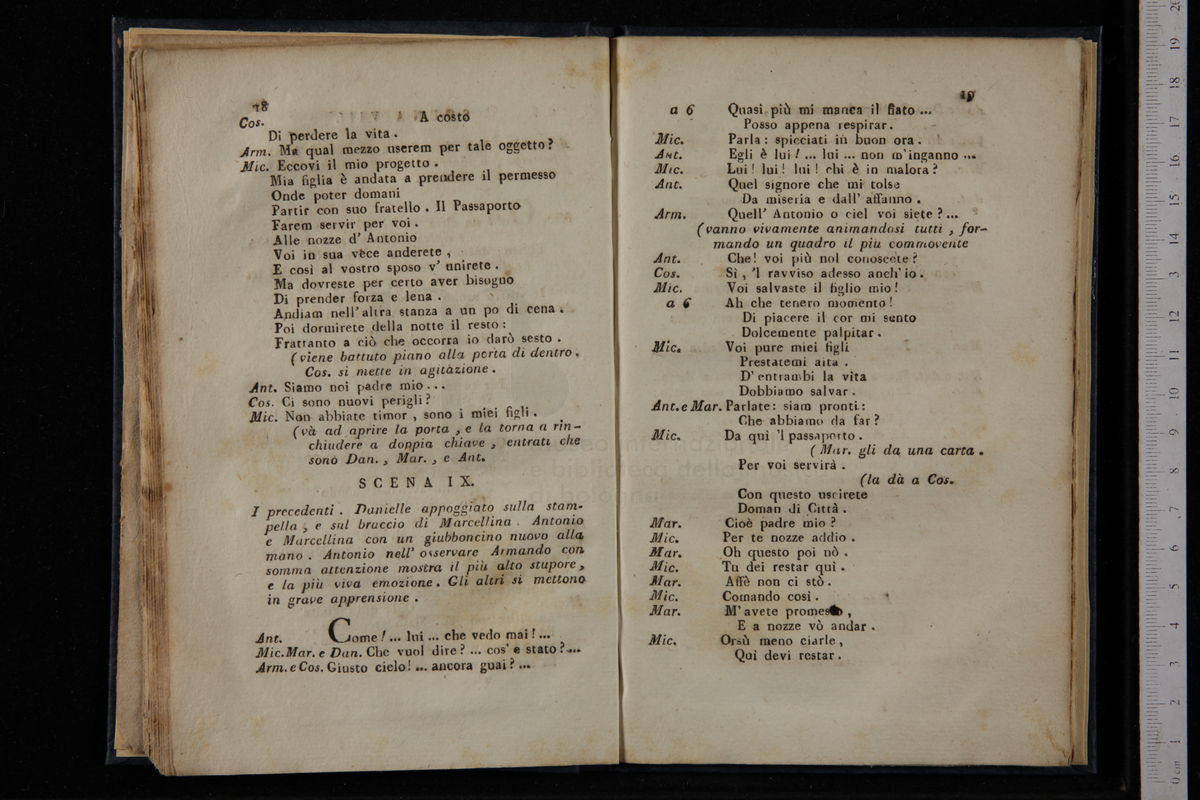 18
Cos. A costo
Di perdere la vita.
Arm. Ma qual mezzo userem per tale oggetto?
Mic. Eccovi il mio progetto.
Mia figlia è andata a prendere il permesso
Onde poter domani
Partir con suo fratello. Il Passaporto
Farem servir per voi.
Alle nozze d' Antonio
Voi in sua vece anderete,
E così al vostro sposo v' unirete.
Ma dovreste per certo aver bisogno
Di prender forza e lena.
Andiam nell' altra stanza a un po di cena.
Poi dormirete della notte il resto:
Frattanto a ciò che occorra io darò sesto.
(viene battuto piano alla porta di dentro.
Cos. si mette in agitazione.
Ant. Siamo noi padre mio...
Cos. Ci sono nuovi perigli?
Mic. Non abbiate timor, sono i miei figli.
(và ad aprire la porta, e la torna a rin-
chiudere a doppia chiave, entrati che
sono Dan., Mar., e Ant.
SCENA IX.
I precedenti. Danielle appoggiato sulla stam-
pella, e sul braccio di Marcellina. Antonio
e Marcellina con un giubboncino nuovo alla
mano. Antonio nell' osservare Armando con
somma attenzione mostra il più alto stupore,
e la più viva emozione. Gli altri si mettono
in grave apprensione.
Ant. Come!... lui... che vedo mai!...
Mic. Mar. e Dan. Che vuol dire?... cos' e stato?...
Arm. e Cos. Giusto cielo!... ancora guai?...
19
a 6 Quasi più mi manca il fiato...
Posso appena respirar.
Mic. Parla: spicciati in buon ora.
Ant. Egli è lui!... lui... non m'inganno...
Mic. Lui! lui! lui! chi è in malora?
Ant. Quel signore che mi tolse
Da miseria e dall' affanno.
Arm. Quell' Antonio o ciel voi siete?...
(vanno vivamente animandosi tutti, for-
mando un quadro il più commovente
Ant. Che! voi più nol conoscete?
Cos. Sì, 'l ravviso adesso anch' io.
Mic. Voi salvaste il figlio mio!
a 6 Ah che tenero momento!
Di piacere il cor mi sento
Dolcemente palpitar.
Mic. Voi pure miei figli
Prestatemi aita.
D' entrambi la vita
Dobbiamo salvar.
Ant. e Mar. Parlate: siam pronti:
Che abbiamo da far?
Mic. Da quì 'l passaporto.
(Mar. gli da una carta.
Per voi servirà.
(la dà a Cos.
Con questo uscirete
Doman di Città.
Mar. Cioè padre mio?
Mic. Per te nozze addio.
Mar. Oh questo poi nò.
Mic. Tu dei restar quì.
Mar. Affè non ci stò.
Mic. Comando così.
Mar. M' avete promesso,
E a nozze vò andar.
Mic. Orsù meno ciarle,
Qui devi restar.